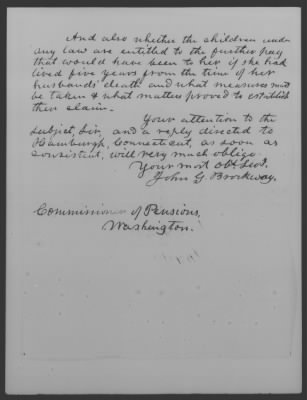 And also whether the children under
any law are entitled to the further pay
that would have been to her, if she had
lived five years from the time of her
husbands' death and what measures must
be taken & what matters proved to establish
their claim.
Your attention to the
subject, Sir, and a reply directed to
Hamburgh, Connecticut, as soon as
consistent, will very much oblige
Your most obt. Sevt.
John G. Brockway.
Commissioner of Pensions,
Washington.